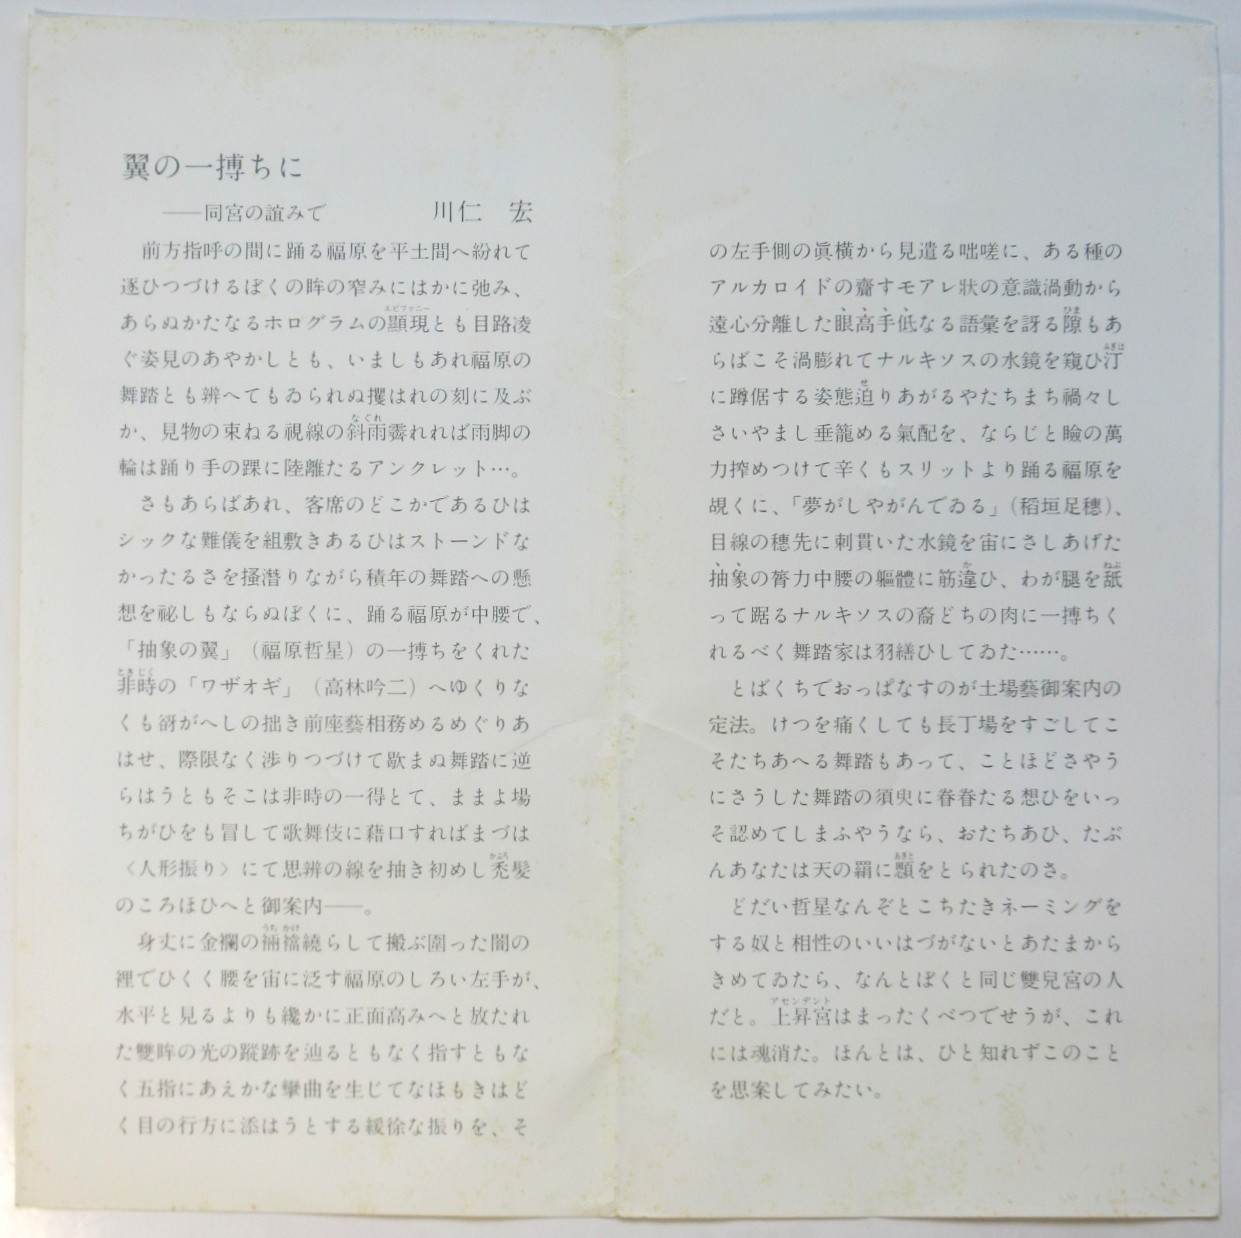 翼の一搏ちに
——同宮の誼みで　川仁　宏
前方指呼の間に踊る福原を平土間へ紛れて
逐ひつづけるぼくの眸の窄みにはかに弛み、
あらぬかたなるホログラムの顕現とも目路凌
ぐ姿見のあやかしとも、いましもあれ福原の
舞踏とも辨へてもゐられぬ攫はれの刻に及ぶ
か、見物の束ねる視線の斜雨霽れれば雨脚の
輪は踊り手の踝に陸離たるアンクレット…。
さもあらばあれ、客席のどこかであるひは
シックな難儀を組敷きあるひはストーンドな
かったるさを掻潜りながら積年の舞踏への懸
想を祕しもならぬぼくに、踊る福原が中腰で、
「抽象の翼」（福原哲星）の一搏ちをくれた
非時の「ワザオギ」（高林吟二）へゆくりな
くも谺がへしの拙き前座藝相務めるめぐりあ
はせ、際限なく渉りつづけて歇まぬ舞踏に逆
らはうともそこは非時の一得とて、ままよ場
ちがひをも冒して歌舞伎に藉口すればまづは
〈人形振り〉にて思辨の線を抽き初めし禿髪
のころほひへと御案内——。
身丈に金襴の裲襠繞らして搬ぶ圍った闇の
裡でひくく腰を宙に泛す福原のしろい左手が、
水平と見るよりも纔かに正面高みへと放たれ
た雙眸の光の蹤跡を辿るともなく指すともな
く五指にあえかな攣曲を生じてなほもきはど
く目の行方に添はうとする緩徐な振りを、そ
の左手側の眞横から見遣る咄嗟に、ある種の
アルカロイドの齎すモアレ狀の意識渦動から
遠心分離した眼高手低なる語彙を訝る隙もあ
らばこそ渦膨れてナルキソスの水鏡を窺ひ汀
に蹲倨する姿態迫りあがるやたちまち禍々し
さいやまし垂籠める氣配を、ならじと瞼の萬
力搾めつけて辛くもスリットより踊る福原を
覘くに、「夢がしやがんでゐる」（稻垣足穗）、
目線の穗先に刺貫いた水鏡を宙にさしあげた
抽象の膂力中腰の軀體に筋違ひ、わが腿を舐
って踞るナルキソスの裔どちの肉に一搏ちく
れるべく舞踏家は羽繕ひしてゐた……。
とばくちでおっぱなすのが土場藝御案内の
定法。けつを痛くしても長丁場をすごしてこ
そたちあへる舞踏もあって、ことほどさやう
にさうした舞踏の須臾に眷眷たる想ひをいっ
そ認めてしまふやうなら、おたちあひ、たぶ
んあなたは天の羂に顋をとられたのさ。
どだい哲星なんぞとこちたきネーミングを
する奴と相性のいいはづがないとあたまから
きめてゐたら、なんとぼくと同じ雙兒宮の人
だと。上昇宮はまったくべつでせうが、これ
には魂消た。ほんとは、ひと知れずこのこと
を思案してみたい。